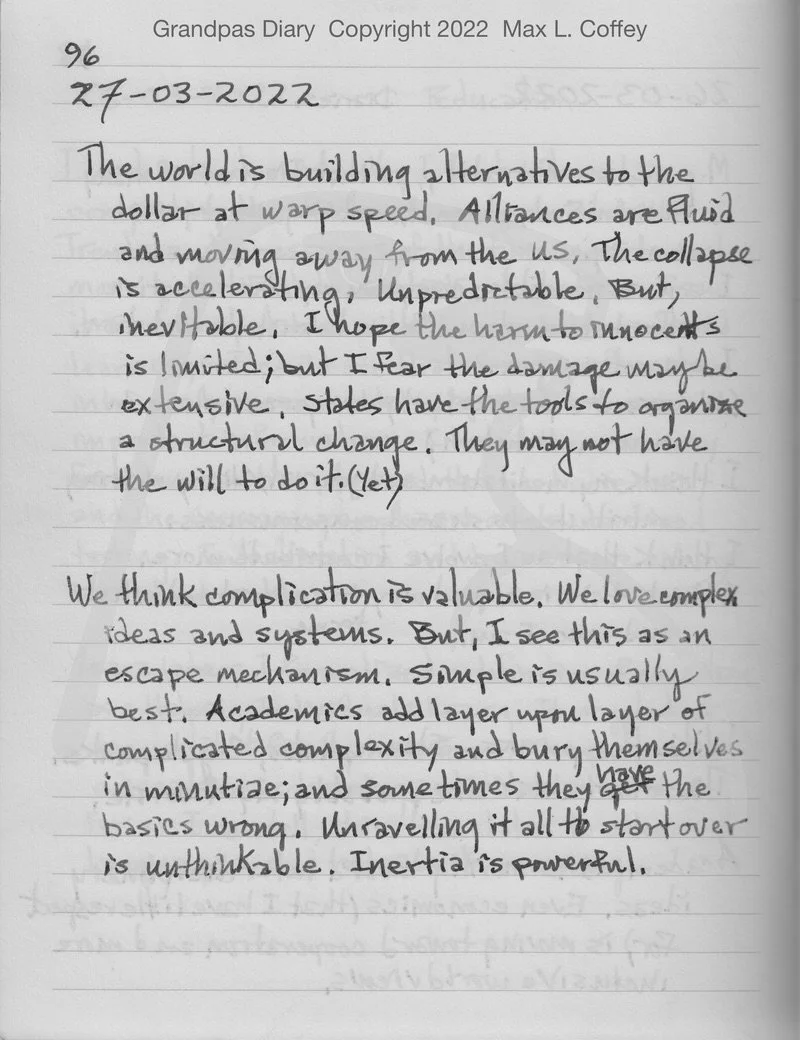 Grandpas Diary Copyright 2022 Max L. Coffey
96
27-03-2022
The world is building alternatives to the
dollar at warp speed. Alliances are fluid
and moving away from the US. The collapse
is accelerating. Unpredictable. But,
inevitable. I hope the harm to innocents
is limited; but I fear the damage may be
extensive. States have the tools to organize
a structural change. They may not have
the will to do it. (Yet)
We think complication is valuable. We love complex
ideas and systems. But, I see this as an
escape mechanism. Simple is usually
best. Academics add layer upon layer of
complicated complexity and bury themselves
in minutiae; and sometimes they have the
basics wrong. Unravelling it all to start over
is unthinkable. Inertia is powerful.